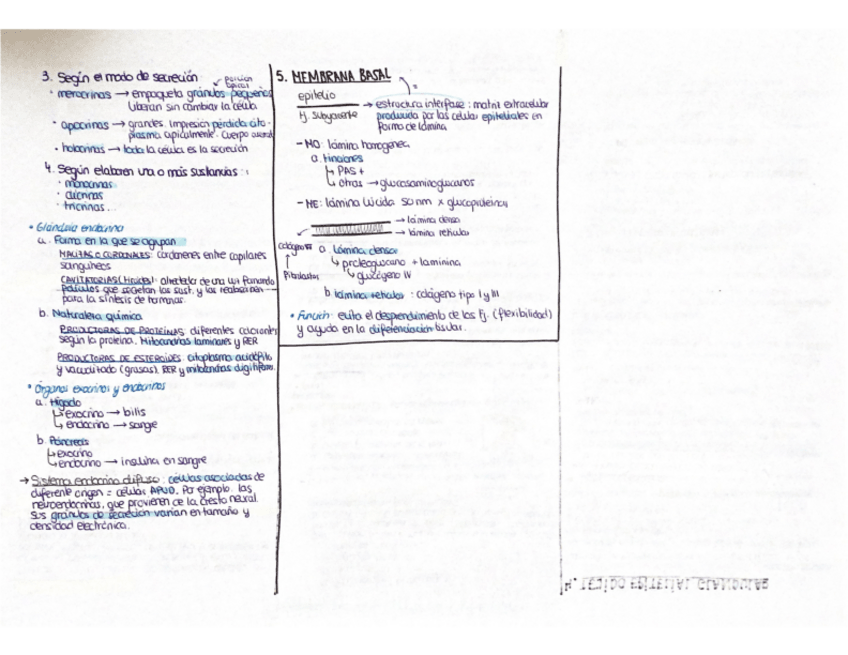 3. Según el modo de secreción
porción apical
• merocrinas → empaqueta gránulos pequeños
liberan sin cambiar la célula
• apocrinas → grandes. Impresión pérdida cito-
plasma apicalmente. Cuerpo
• holocrinas → toda la célula es la secreción
4. Según elaboren una o más sustancias:
• monocrinas
• dicrinas
• tricrinas...
• Glándula endocrina
a. Forma en la que se agrupan
MACIZAS O CORDONALES: cordones entre capilares
sanguíneos
CAVITARIAS (tiroides): alrededor de una luz formando
folículos que secretan las sust. y las reabsorben
para la síntesis de hormonas.
b. Naturaleza química
PRODUCTORAS DE PROTEÍNAS: diferentes coloraciones
según la proteína. Mitocondrias laminares y RER
PRODUCTORAS DE ESTEROIDES: citoplasma acidófilo
y vacuolizado (grasas), RER y mitocondrias digitiform.
• Órganos exocrinos y endocrinos
a. Hígado
↳ exocrino → bilis
↳ endocrino → sangre
b. Páncreas
↳ exocrino
↳ endocrino → insulina en sangre
→ Sistema endocrino difuso: células asociadas de
diferente origen = células APUD. Por ejemplo, las
neuroendocrinas, que provienen de la cresta neural.
Sus gránulos de secreción varían en tamaño y
densidad electrónica.
5. MEMBRANA BASAL
epitelio
tj. subyacente
→ estructura interfase: matriz extracelular
producida por las células epiteliales en
forma de lámina
- MO: lámina homogénea
a. Tinciones
↳ PAS +
↳ otras → glucosaminoglucanos
- ME: lámina lúcida 50 nm x glucoproteínas
→ lámina densa
→ lámina reticular
colágeno VII
fibroblastos
a. Lámina densa
↳ proteoglucano + laminina
↳ colágeno IV
b. lámina reticular: colágeno tipo I y III
• Función: evita el desprendimiento de los tj. (flexibilidad)
y ayuda en la diferenciación tisular.